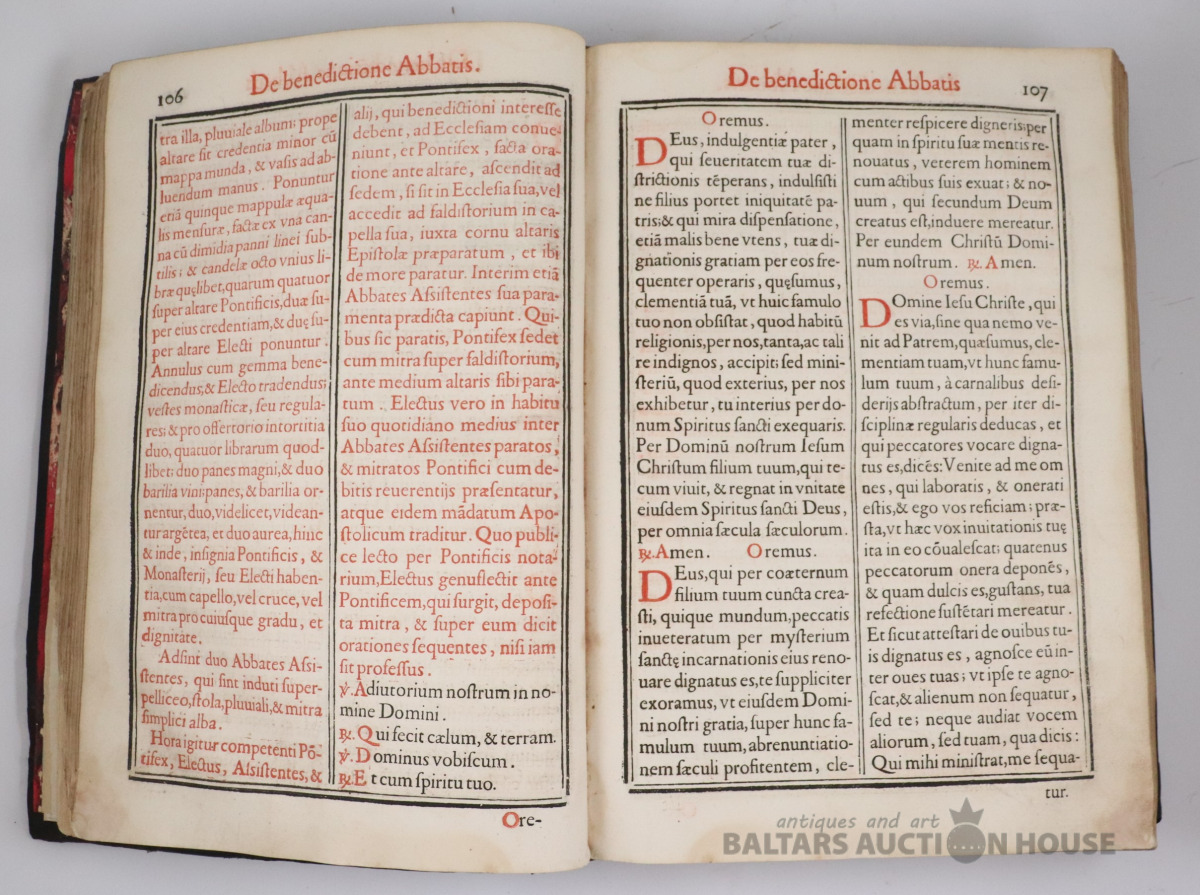 De benedictione Abbatis.
106
tra illa, pluuiale album: prope
altare sit credentia minor cū
mappa munda, & vasis ad ab-
luendum manus. Ponuntur
etiā quinque mappulæ æqua-
lis mensuræ, factæ ex vna can-
na cū dimidia panni linei sub-
tilis; & candelæ octo vnius li-
bræ quęlibet, quarum quatuor
super altare Pontificis, duæ su-
per eius credentiam, & duę su-
per altare Electi ponuntur.
Annulus cum gemma bene-
dicendus, & Electo tradendus;
vestes monasticæ, seu regula-
res; & pro offertorio intortitia
duo, quatuor librarum quod-
libet: duo panes magni, & duo
barilia vini; panes, & barilia or-
nentur, duo, videlicet, videan-
tur argētea, et duo aurea, hinc
& inde, insignia Pontificis, &
Monasterij, seu Electi haben-
tia, cum capello, vel cruce, vel
mitra pro cuiusque gradu, et
dignitate.
Adsint duo Abbates Assi-
stentes, qui sint induti super-
pelliceo, stola, pluuiali, & mitra
simplici alba.
Hora igitur competenti Pō-
tifex, Electus, Assistentes, &
alij, qui benedictioni interesse
debent, ad Ecclesiam conue-
niunt, et Pontifex, facta ora-
tione ante altare, ascendit ad
sedem, si sit in Ecclesia sua, vel
accedit ad faldistorium in ca-
pella sua, iuxta cornu altaris
Epistolæ præparatum, et ibi
de more paratur. Interim etiā
Abbates Assistentes sua para-
menta prædicta capiunt. Qui-
bus sic paratis, Pontifex sedet
cum mitra super faldistorium,
ante medium altaris sibi para-
tum. Electus vero in habitu
suo quotidiano medius inter
Abbates Assistentes paratos,
& mitratos Pontifici cum de-
bitis reuerentijs præsentatur,
atque eidem mādatum Apo-
stolicum traditur. Quo publi-
ce lecto per Pontificis nota-
rium, Electus genuflectit ante
Pontificem, qui surgit, deposi-
ta mitra, & super eum dicit
orationes sequentes, nisi iam
sit professus.
℣. Adiutorium nostrum in no-
mine Domini.
℟. Qui fecit cælum, & terram.
℣. Dominus vobiscum.
℟. Et cum spiritu tuo.
Ore-
De benedictione Abbatis
107
Oremus.
DEus, indulgentiæ pater,
qui seueritatem tuæ di-
strictionis tēperans, indulsisti
ne filius portet iniquitatē pa-
tris; & qui mira dispensatione,
etiā malis bene vtens, tuæ di-
gnationis gratiam per eos fre-
quenter operaris, quęsumus,
clementiā tuā, vt huic famulo
tuo non obsistat, quod habitū
religionis, per nos, tanta, ac tali
re indignos, accipit; sed mini-
steriū, quod exterius, per nos
exhibetur, tu interius per do-
num Spiritus sancti exequaris.
Per Dominū nostrum Iesum
Christum filium tuum, qui te-
cum viuit, & regnat in vnitate
eiusdem Spiritus sancti Deus,
per omnia sæcula sæculorum.
℟. Amen. Oremus.
DEus, qui per coæternum
filium tuum cuncta crea-
sti, quique mundum, peccatis
inueteratum per mysterium
sanctę incarnationis eius reno-
uare dignatus es, te suppliciter
exoramus, vt eiusdem Domi-
ni nostri gratia, super hunc fa-
mulum tuum, abrenuntiatio-
nem sæculi profitentem, cle-
menter respicere digneris; per
quam in spiritu suæ mentis re-
nouatus, veterem hominem
cum actibus suis exuat; & no-
uum, qui secundum Deum
creatus est, induere mereatur.
Per eundem Christū Domi-
num nostrum. ℟. Amen.
Oremus.
DOmine Iesu Christe, qui
es via, sine qua nemo ve-
nit ad Patrem, quæsumus, cle-
mentiam tuam, vt hunc famu-
lum tuum, à carnalibus desi-
derijs abstractum, per iter di-
sciplinæ regularis deducas, et
qui peccatores vocare digna-
tus es, dicēs: Venite ad me om
nes, qui laboratis, & onerati
estis, & ego vos reficiam; præ-
sta, vt hæc vox inuitationis tuę
ita in eo cōualescat; quatenus
peccatorum onera deponēs,
& quam dulcis es, gustans, tua
refectione sustētari mereatur.
Et sicut attestari de ouibus tu-
is dignatus es, agnosce eū in-
ter oues tuas; vt ipse te agno-
scat, & alienum non sequatur,
sed te; neque audiat vocem
aliorum, sed tuam, qua dicis:
Qui mihi ministrat, me sequa-
tur.
antiques and art
BALTARS AUCTION HOUSE